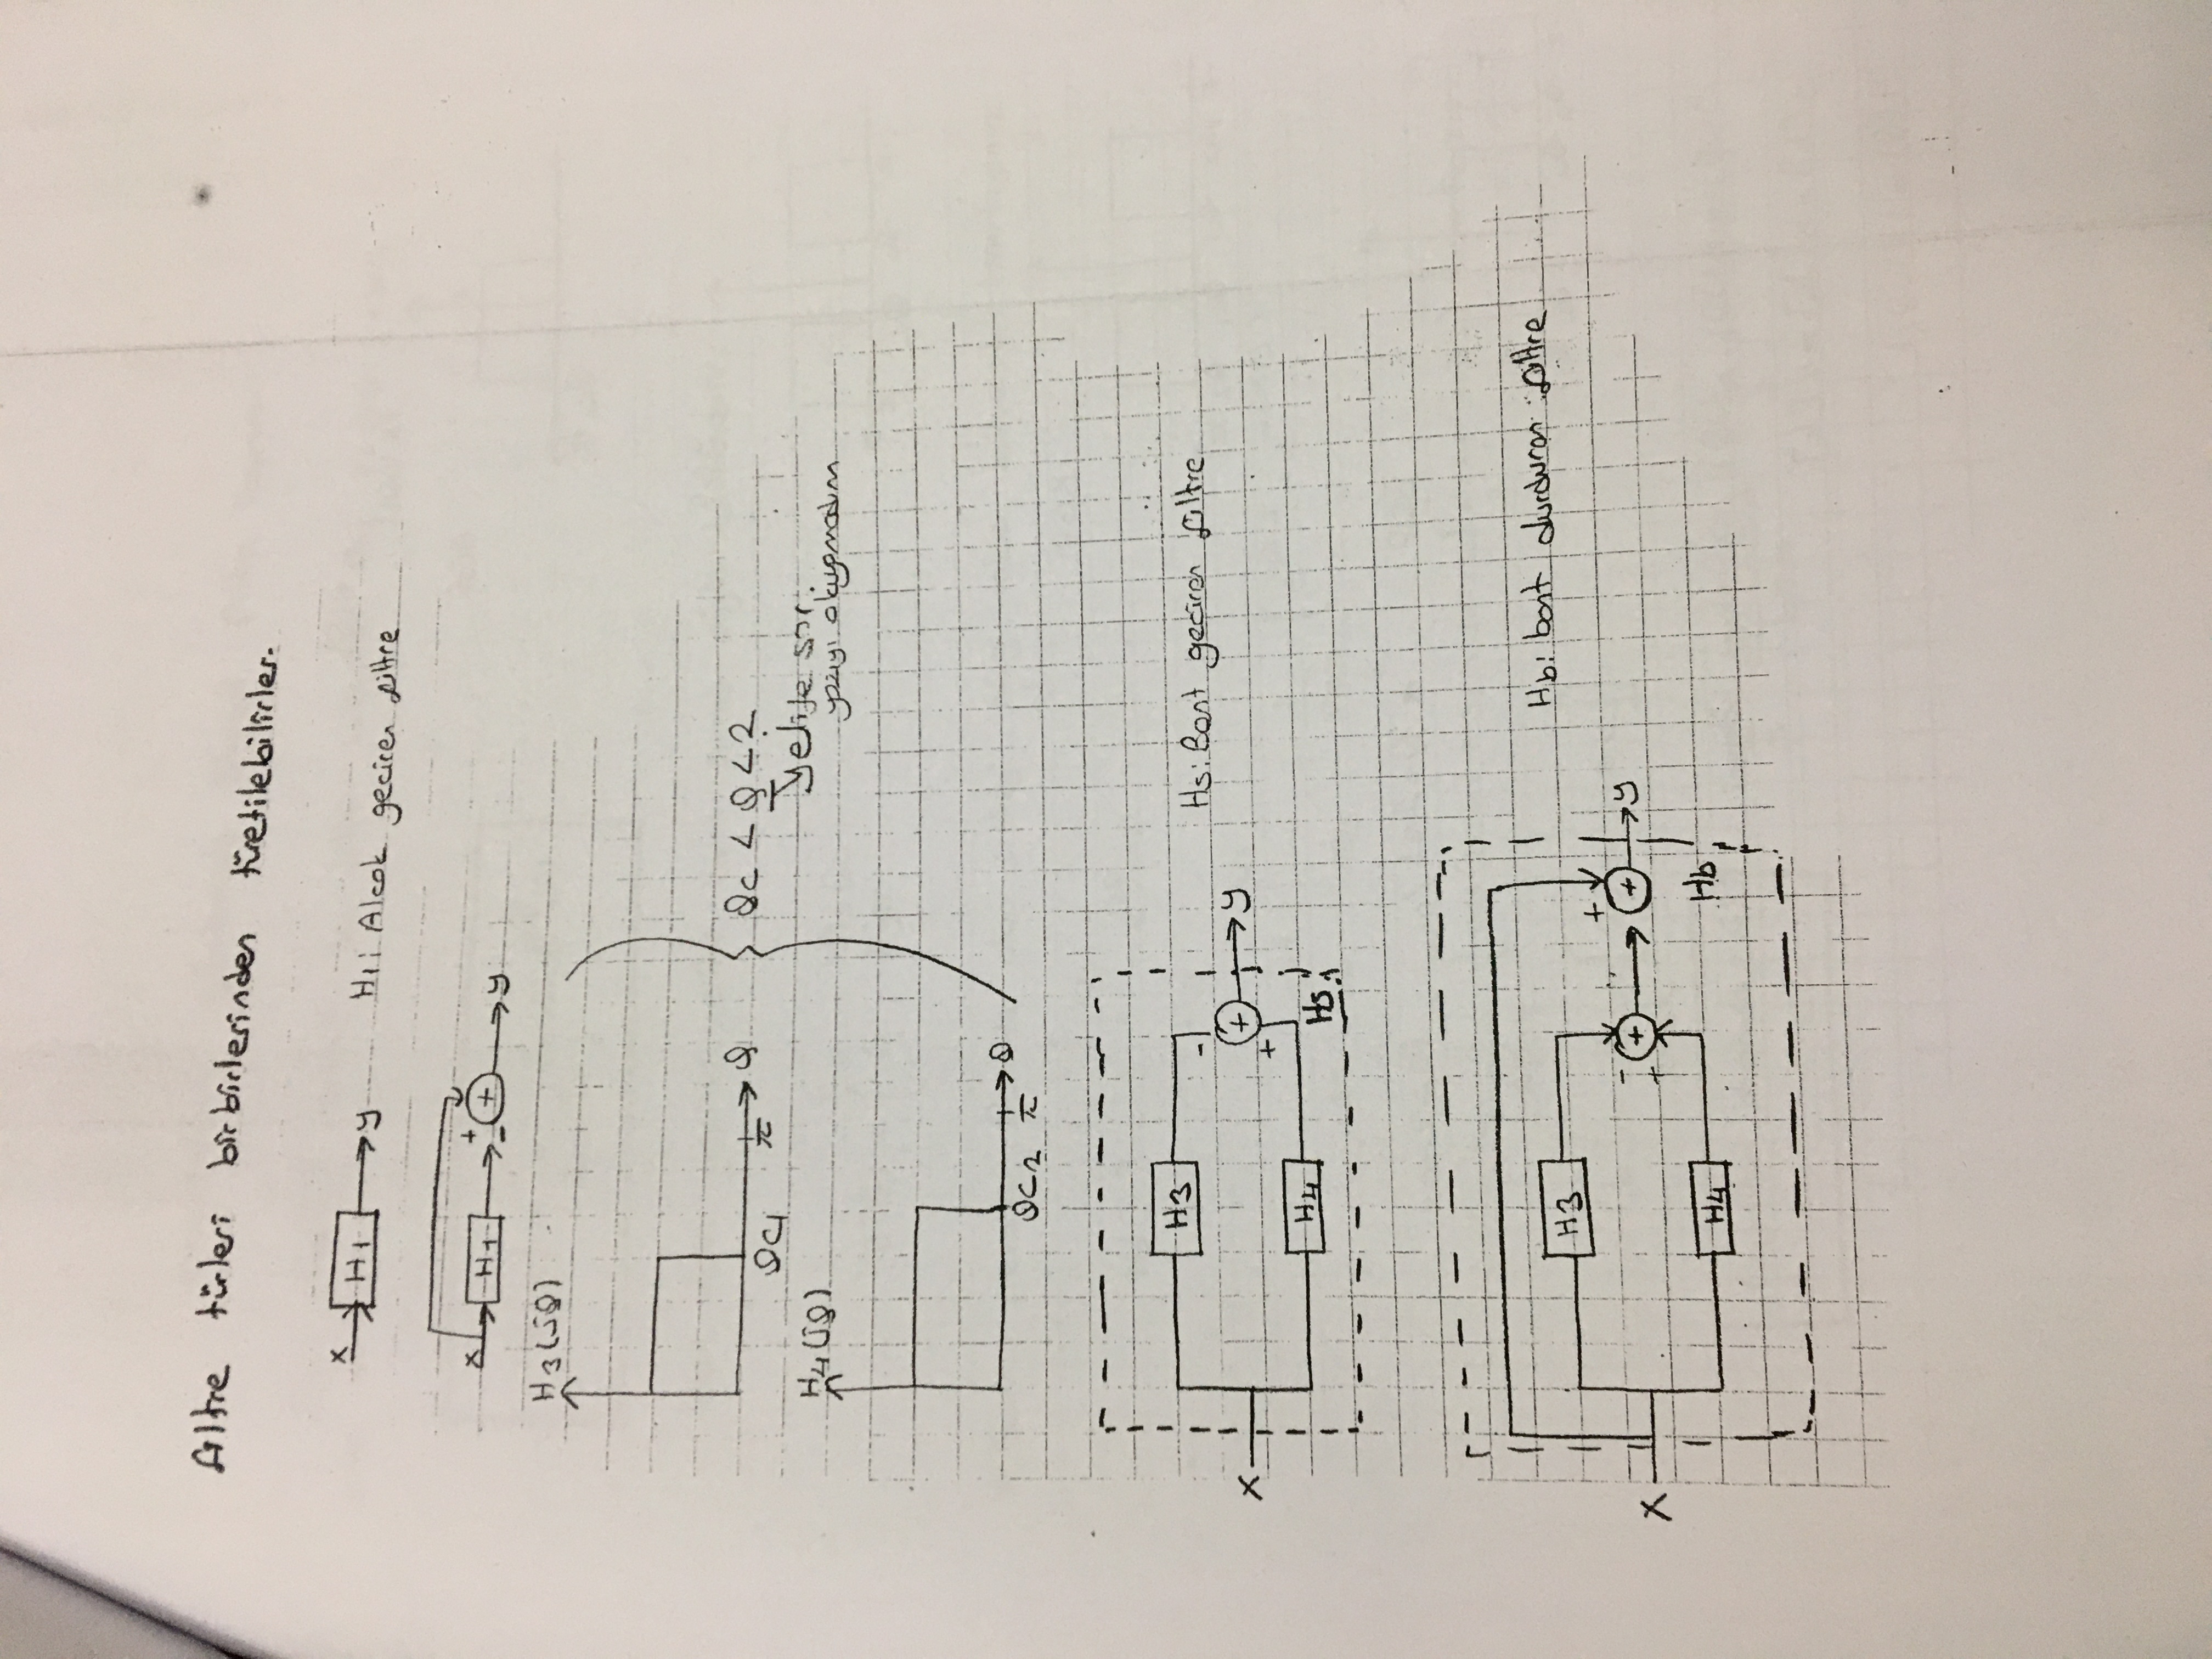 filtre türleri birbirlerinden türetilebilirler.
x H1 y H1: Alcak geciren filtre
+
x H1 - + y
H3(jΩ)
Ωc1 π Ω
Ωc < Ω < ?
sor.
yazıyı okuyamadım
H4(jΩ)
Ωc2 π Ω
H3
-
x + y
+
H4
Hs
Hs: Bant geciren filtre
H3
Hb: bant durduran filtre
- +
x + + y
+
H4
Hb